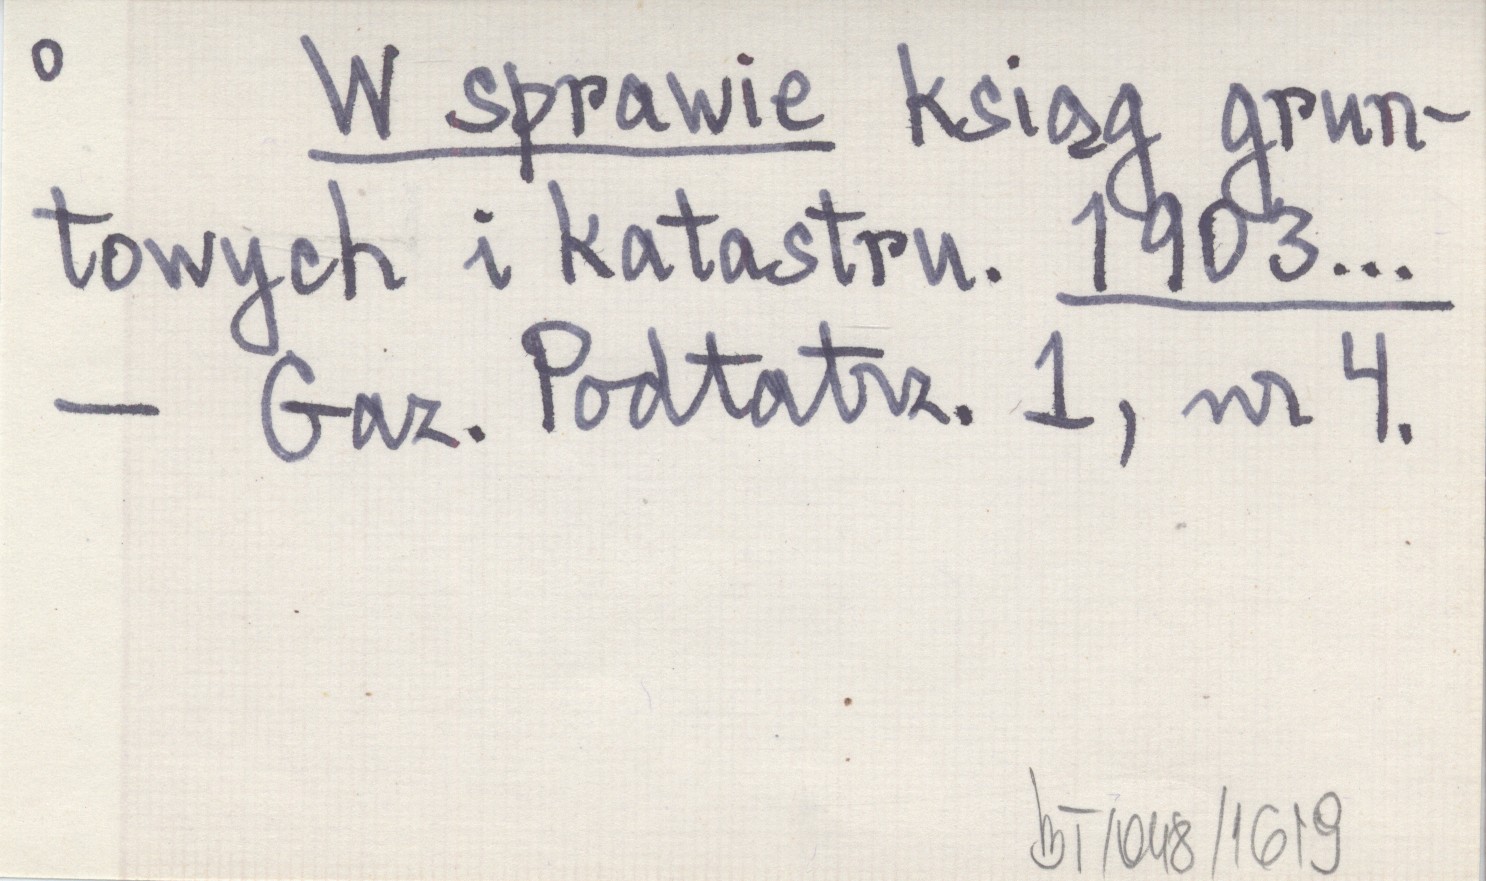 o W sprawie ksiąg grun-
towych i katastru. 1903...
— Gaz. Podtatrz. 1, nr 4.
bT/048/1619